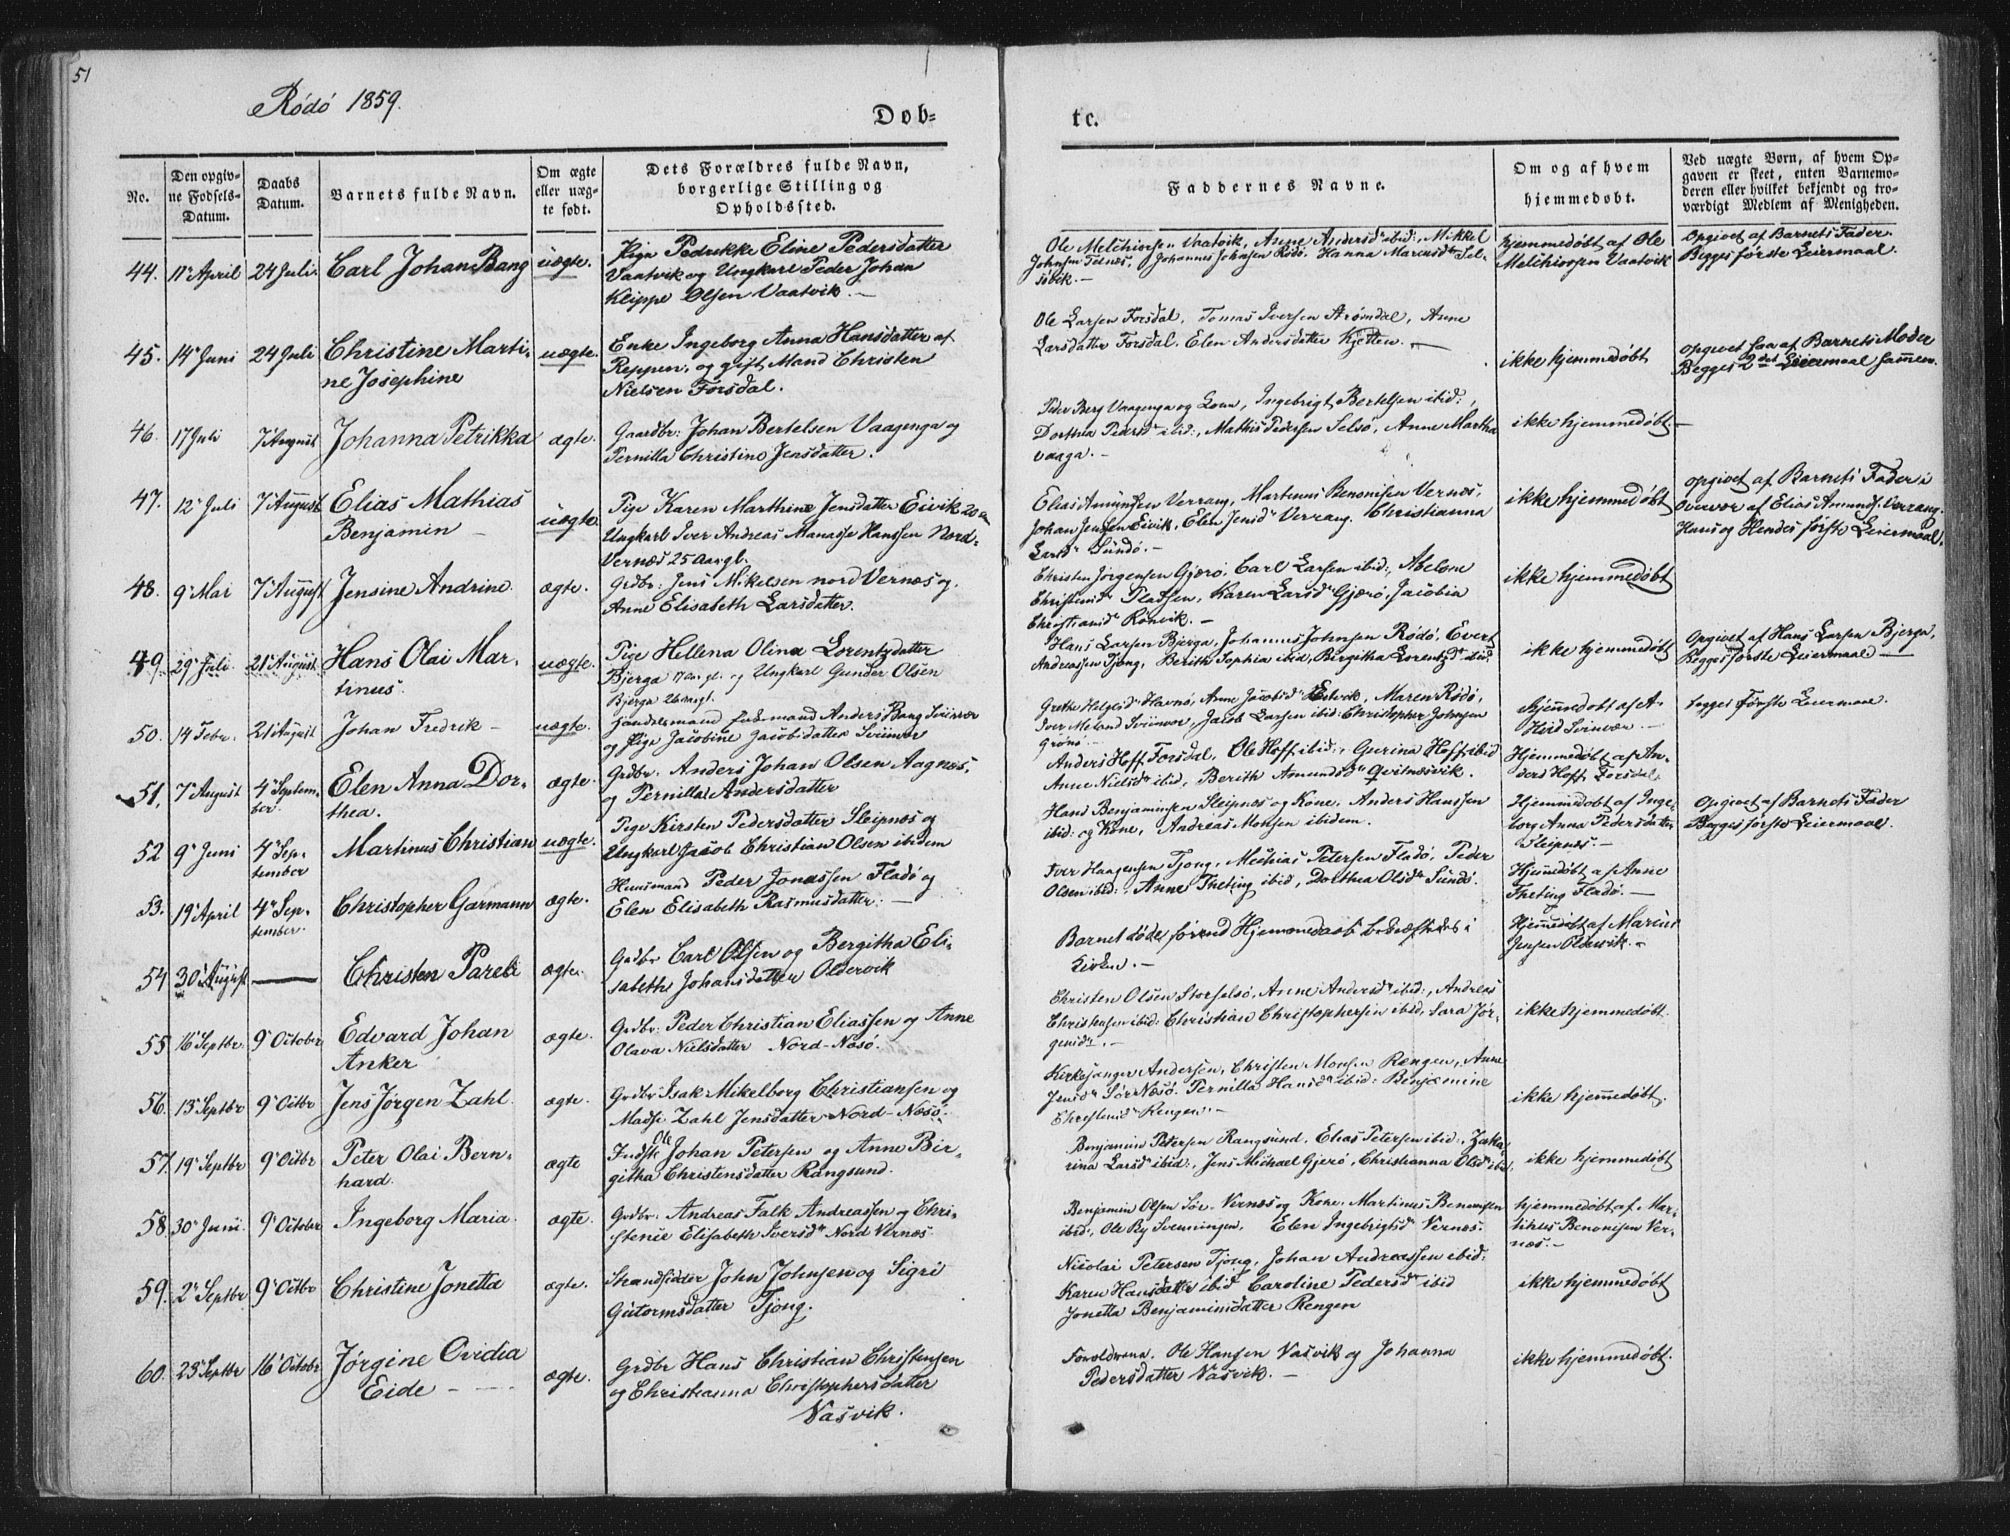 51
Rödö 1859.
Dob=
te.
No.
Den opgiv=
ne Fødsels=
Datum.
Daabs
Datum.
Barnets fulde Navn.
Om ægte
eller uæg=
te født.
Dets Forældres fulde Navn,
borgerlige Stilling og
Opholdssted.
Faddernes Navne.
Om og af hvem
hjemmedøbt.
Ved uægte Børn, af hvem Op=
gaven er skeet, enten Barnemo=
deren eller hvilket bekjendt og tro=
værdigt Medlem af Menigheden.
44. 11te April 24 Juli Carl Johan Bang uægte. Pige Petrikke Eline Pedersdatter
Vaatvik og Ungkarl Peder Johan
Klippe Olsen Vaatvik. —
Ole Melchiorsen Vaatvik, Anne Andersdr ibid: Mikkel
Johnsen Telnes, Johannes Johnsen Rödö, Hanna Marcusdr Sel=
søvik. —
hjemmedøbt af Ole
Melchiorsen Vaatvik
Opgivet af Barnets Fader.
Begges første Leiermaal.
45. 14 Juni 24 Juli Christine Marti=
ne Josephine
uægte. Enke Ingeborg Anna Hansdatter af
Reppen, og gift Mand Christen
Nielsen Forsdal.
Ole Larsen Forsdal, Tomas Iversen Strömdal, Anne
Larsdatter Forsdal, Elen Andersdatter Kjetten. —
ikke hjemmedøbt
opgivet saa af Barnets Moder
Begges 2det Leiermaal sammen.
46. 17 Juli 7 August Johanna Petrikka ægte. Gaardbr: Johan Bertelsen Vaagenga og
Pernilla Christine Jensdatter.
Peder Berg Vaagenga og Kone, Ingebrigt Bertelsen ibid:,
Dorthea Pedersdr ibid:, Mathis Pedersen Selsö, Anne Martha
Vaaga. —
ikke hjemmedøbt. —
47. 12 Juli 7 August Elias Mathias
Benjamin —
uægte. Pige Karen Marthine Jensdatter Eivik 20 a
Ungkarl Iver Andreas Manasse Hanssen Nord-
Vernæs 25 aargl.
Elias Amundsen Verrang, Martinus Benonisen Vernæs,
Johan Jensen Eivik, Elen Jensdr Verrang, Christianna
Larsdr Sundö. —
ikke hjemmedøbt
opgivet af Barnets Fader i
Overvær af Elias Amunds. Verrang.
Hans og Hendes første Leiermaal.
48. 9 Mai 7 August Jensine Andrine. ægte. Grdbr: Jens Mikelsen nord Vernæs og
Anne Elisabeth Larsdatter.
Christen Jörgensen Gjærö, Carl Larsen ibid:, Abelone
Christensdr Pladsen, Karen Larsdr Gjærö, Jacobia
Christiansdr Rönvik. —
ikke hjemmedøbt
49. 29 Juli 21 August Hans Olai Mar=
tinus.
uægte. Pige Hellena Olina Lorentzdatter
Bjerga 17 aargl. og Ungkarl Gunder Olsen
Bjerga 26 aargl.
Hans Larsen Bjerga, Johannes Johnsen Rödö, Evert
Andreassen Tjong, Berith Sophia ibid, Bergitha Lorentzdr ibid.
ikke hjemmedøbt
Opgivet af Hans Larsen Bjerga,
Begges første Leiermaal —
50. 14 Febr. 21 August Johan Fredrik — uægte. Handelsmand Anders Bang Svinvær
og Pige Jacobine Jacobsdatter Svinvær
Grethe Helgesdr Havnö, Anne Jacobsdr Estvik, Maren Rödö,
Iver Meland Svinvær, Jacob Larsen ibid: Christopher Johnsen
Grönö. —
hjemmedøbt af A.
Hvid Svinvær. —
begges Første Leiermaal.
51. 7 August 4 Septem=
ber.
Elen Anna Dor=
thea.
ægte. Grdbr: Anders Johan Olsen Aagnes,
og Pernilla Andersdatter
Anders Hoff Forsdal, Ole Hoff ibid:, Gurina Hoff ibid
Anne Nielsdr ibid, Berith Amundsdr Qvitnesvik.
Hjemmedøbt af An=
ders Hoff Forsdal.
52 9 Juni 4 Sep=
tember
Martinus Christian uægte. Pige Kirsten Pedersdatter Sleipnæs og
Ungkarl Jacob Christian Olsen ibidem
Hans Benjaminsen Sleipnæs og Kone, Anders Hanssen
ibid: og Kone, Andreas Monsen ibidem.
Hjemmedøbt af Inge=
borg Anna Pedersdatter
Sleipnes. —
Opgivet af Barnets Fader
Begges første Leiermaal.
53. 19 April 4 Sep=
tember.
Christopher Garmann ægte. Huusmand Peder Jonassen Fladö og
Elen Elisabeth Rasmusdatter. —
Iver Haagensen Tjong, Mathias Petersen Fladö, Peder
Olsen ibid:, Anne Theting ibid, Dorthea Olsdr Sundö.
Hjemmedøbt af Anne
Theting Fladö. —
54 30 August — Christen Pareli ægte. Grdbr Carl Olsen og Bergitha Eli=
sabeth Johansdatter Oldervik
Barnet døde förend Hjemmedaab bekræftedes i
Kirken. —
Hjemmedøbt af Marius
Jensen Oldervik. —
55 16 Septbr. 9 October Edvard Johan
Anker
ægte. Grdbr: Peder Christian Eliassen og Anne
Olava Nielsdatter Nord-Nesö.
Christen Olsen Storselsö, Anne Andersdr ibid:, Andreas
Christensen ibid: Christian Christophersen ibid, Sara Jör=
gensdr. —
ikke hjemmedøbt
56. 13 Septbr 9 Octbr Jens Jörgen Zahl. ægte. Grdbr Isak Mikelborg Christiansen og
Madse Zahl Jensdatter Nord-Nesö.
Kirkesanger Andersen, Christen Monsen Rengen, Anne
Jensdr Sør Nesö. Pernilla Hansdr ibid: Benjamine
Christensdr Rengen. —
ikke hjemmedøbt.
57. 19 Septbr 9 Octbr Peter Olai Bern=
hard.
ægte Indst: Ole Johan Petersen og Anne Bir=
githa Christensdatter Rangsund.
Benjamin Petersen Rangsund, Elias Petersen ibid:, Zaka=
rina Larsdr ibid:, Jens Michael Gjerö, Christianna Olsdr ibid.
ikke hjemmedøbt
58. 30 Juni 9 October Ingeborg Maria. ægte. Grdbr: Andreas Falk Andreassen og Chri=
stense Elisabeth Iversdr Nord Vernes.
Benjamin Olsen Sör-Vernæs og Kone, Martinus Benonisen
ibid:, Ole By Svenningen, Elen Ingebrigtsdr Vernes.
hjemmedøbt af Mar=
Benonisen Ver=
næs. —
59. 2 Septbr 9 Octbr Christine Jonetta ægte. Strandsidder John Johnsen og Sigri
Gutormsdatter Tjong.
Nicolai Petersen Tjong, Johan Andreassen ibid:
Karen Hansdatter ibid Caroline Pedersdr ibid
Jonetta Benjaminsdatter Rengen
ikke hjemmedøbt
60. 23 Septbr 16 Octobr Jörgine Ovidia
Eide —
ægte. Grdbr Hans Christian Christensen
og Christianna Christophersdatter
Vasvik.
Foreldrene, Ole Hansen Vasvik og Johanna
Pedersdatter Vasvik. —
ikke hjemmedøbt.